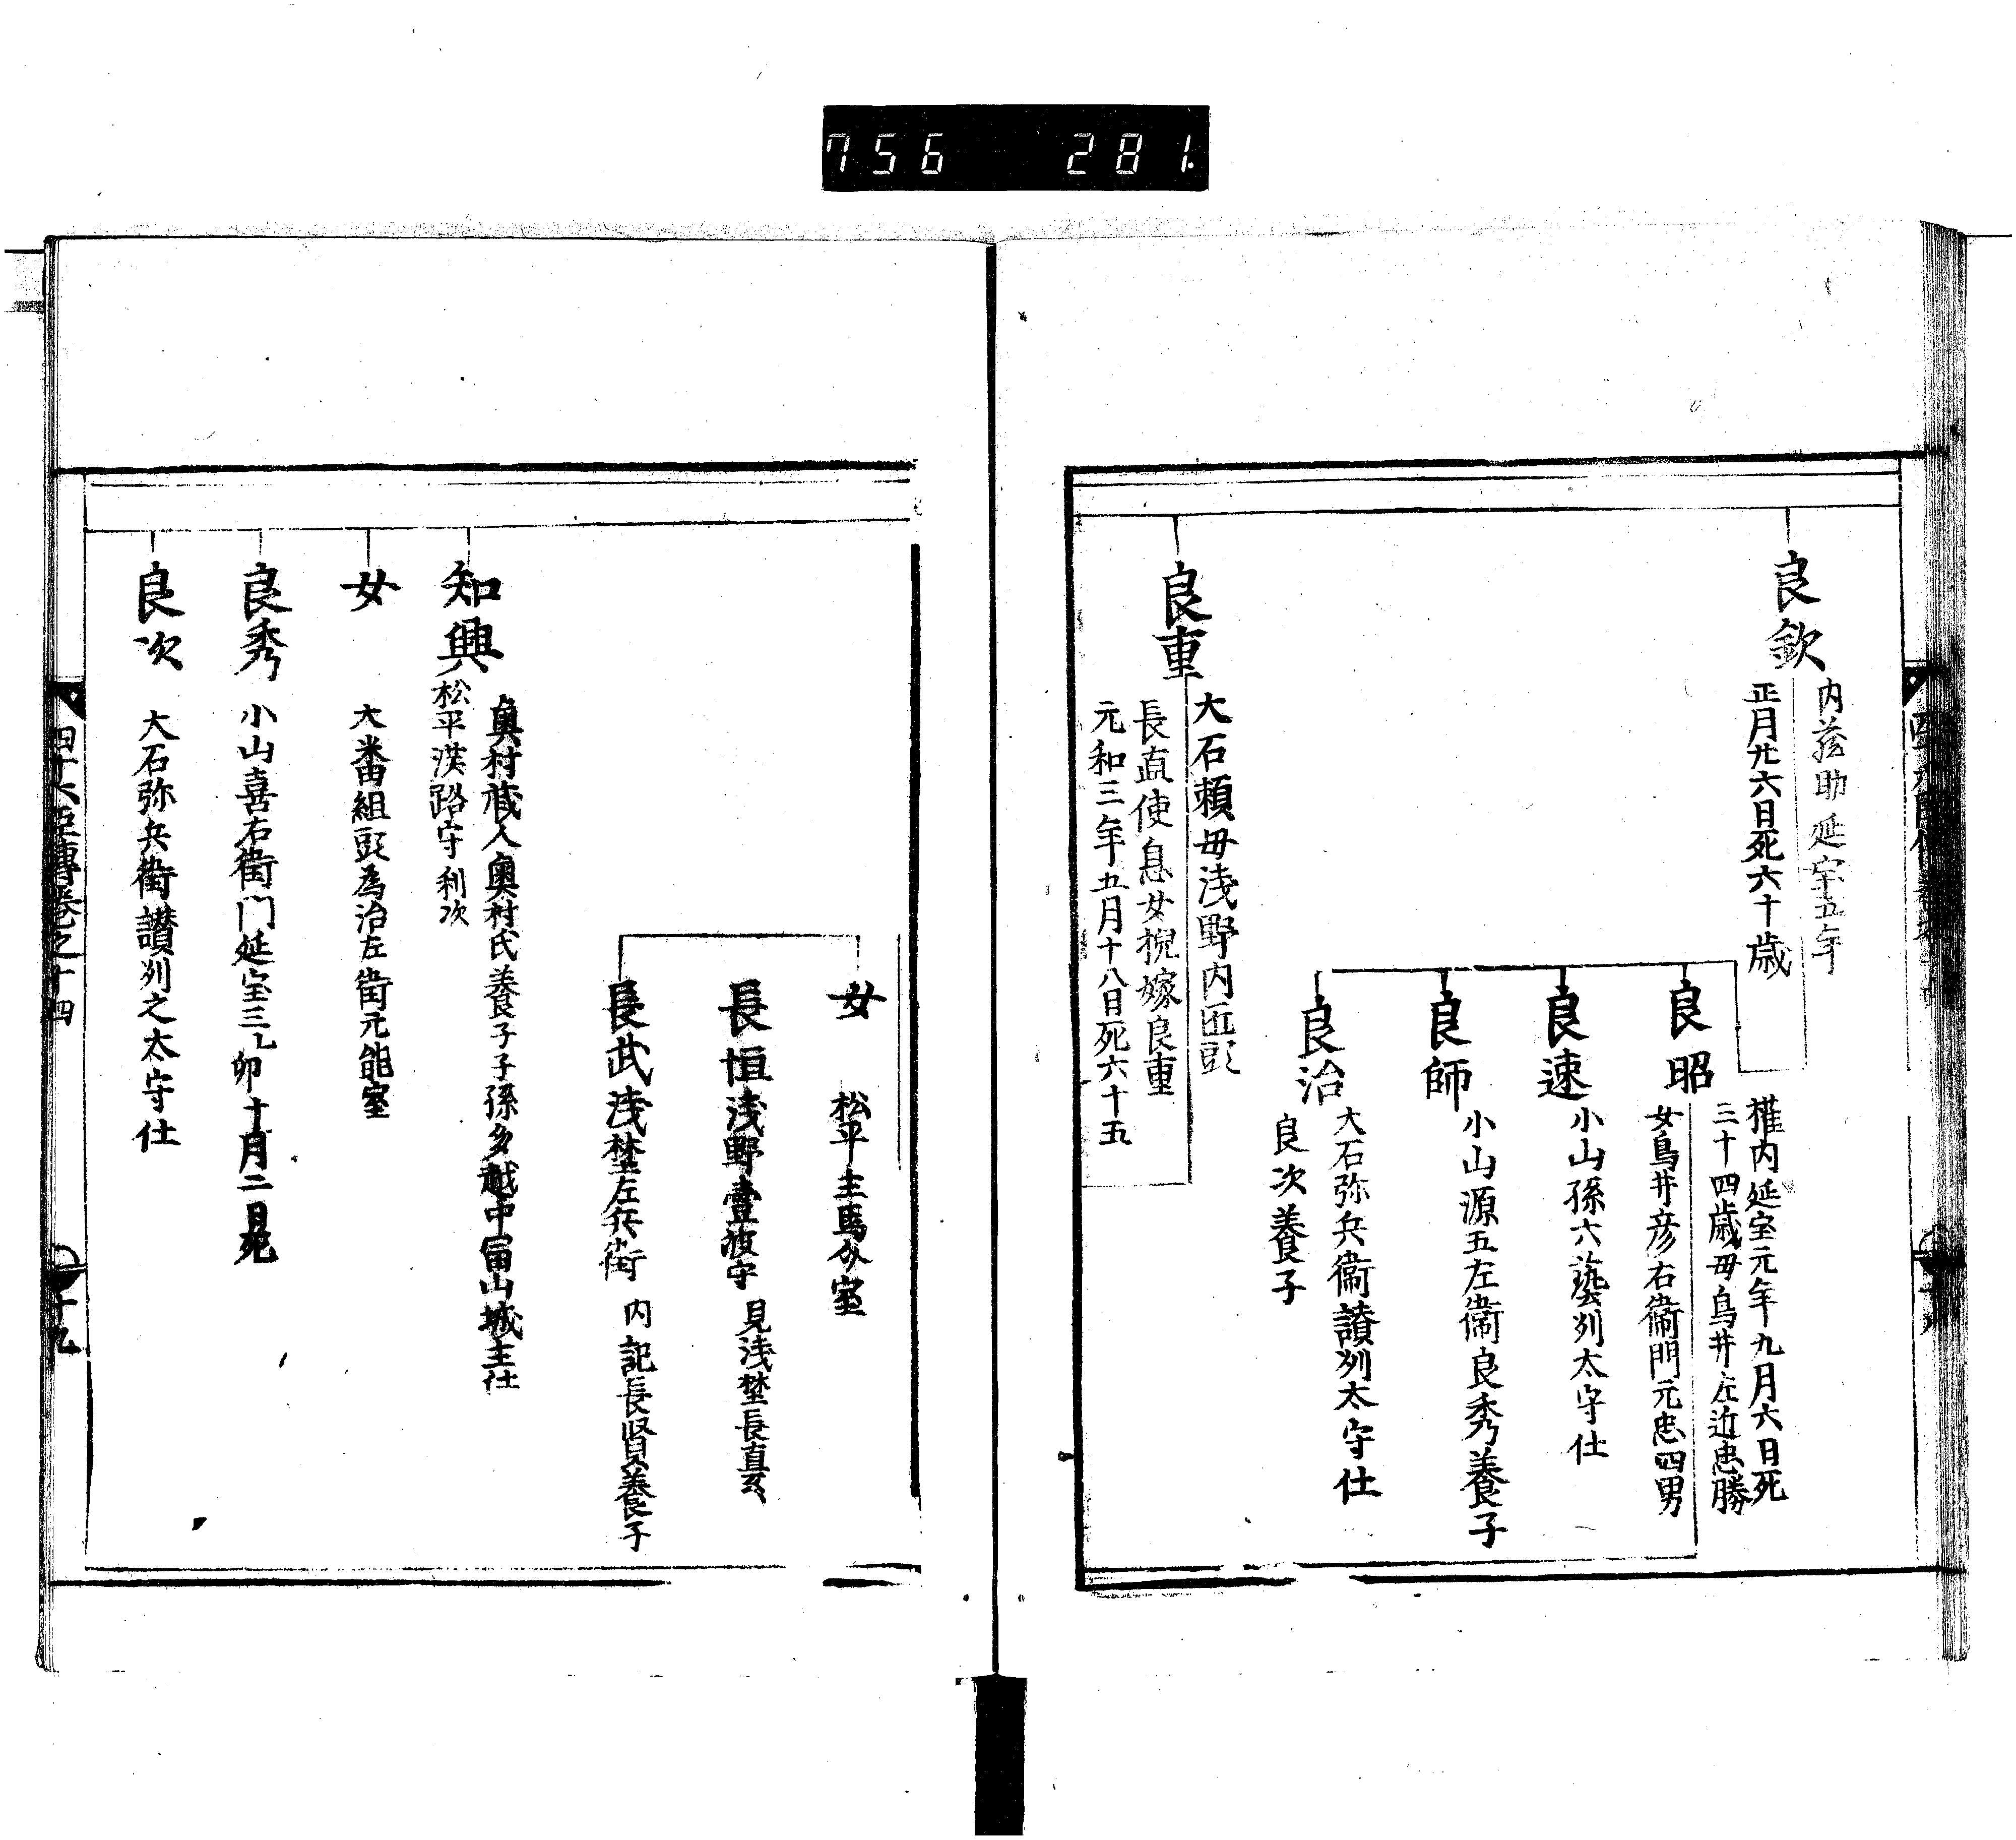 756 281
良欽
内蔵助延宝五年
正月廿六日死六十歳
良昭
権内延宝元年九月六日死
三十四歳母鳥井左近忠勝
女鳥井彦右衛門元忠四男
良速
小山孫六藝州太守仕
良師
小山源五左衛良秀養子
良治
大石弥兵衞讃州太守仕
良次養子
良重
大石頼母浅野内匠頭
長直使息女拠嫁良重
元和三年五月十八日死六十五
女
松平主馬欠室
長恒浅野壹岐守
見浅埜長直
長武浅埜左兵衛
内記長賢養子
知興
奥村蔵人奥村氏養子子孫多越中冨山城主仕
松平淡路守利次
女
大番組頭為治左衛元能室
良秀
小山喜右衛門延宝三乙卯十月二日死
良次
大石弥兵衛讃州之太守仕
四十六臣傳巻之十四
十九